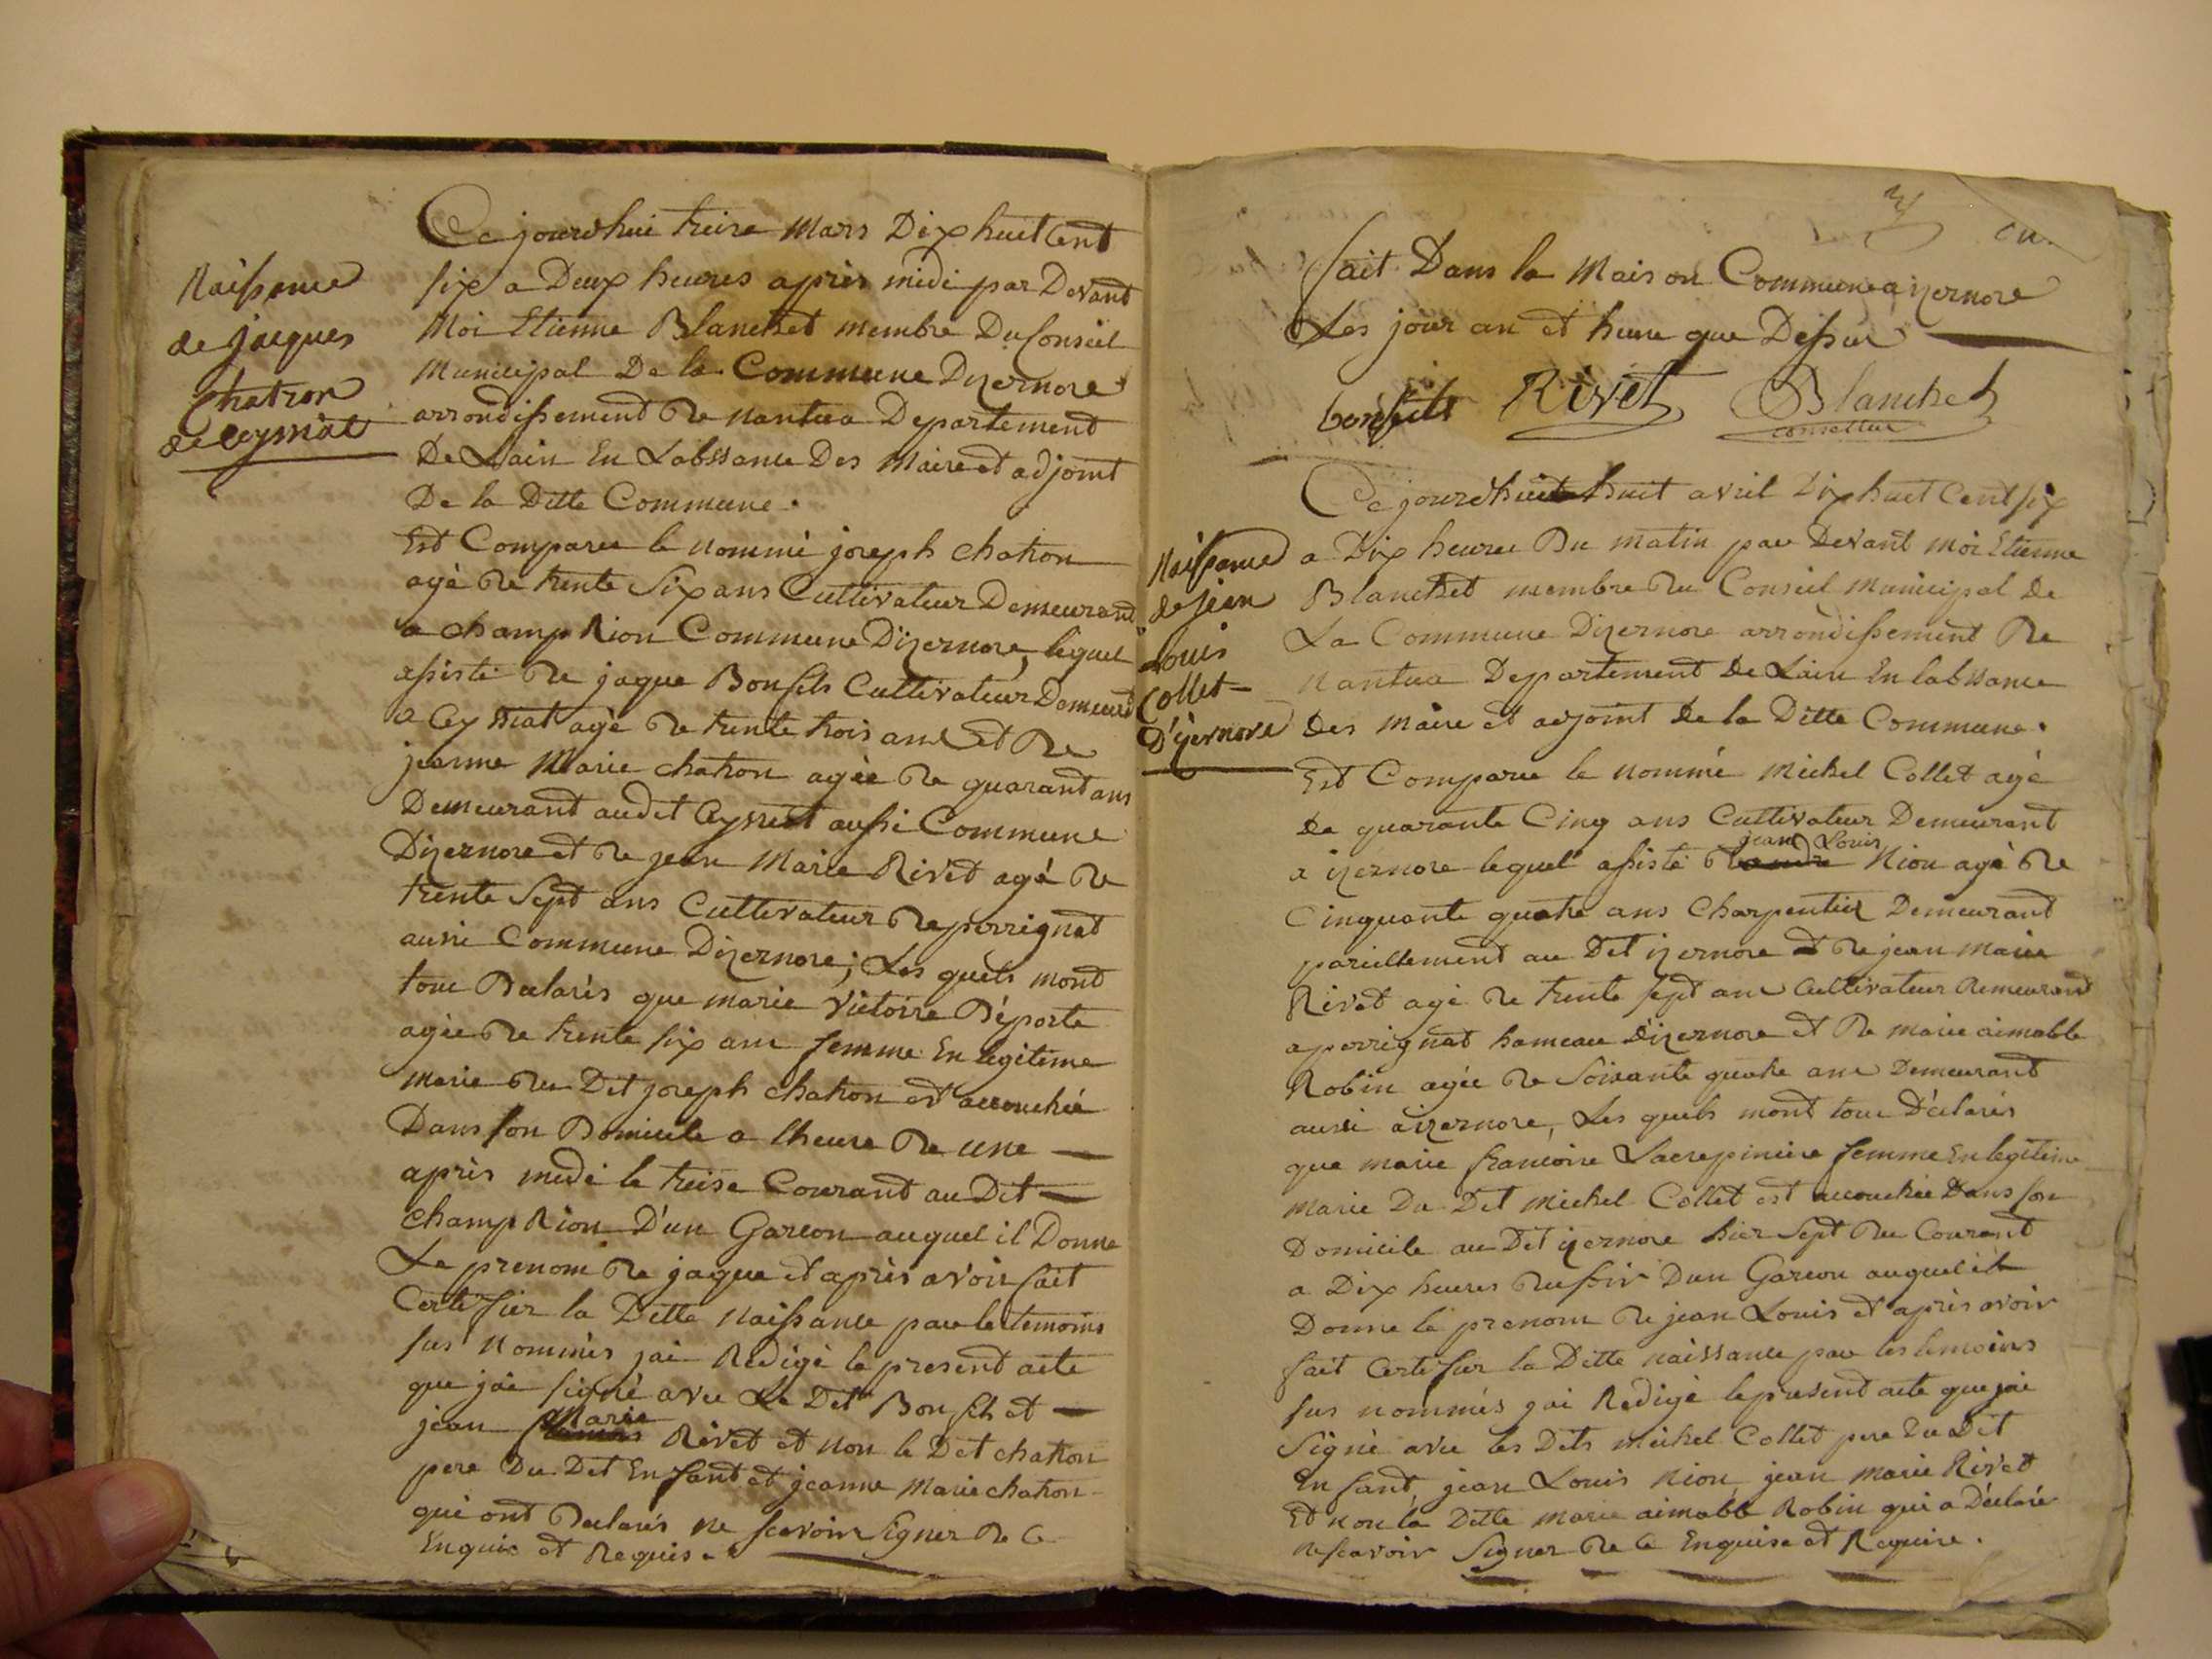 Naissance
de jacques
Chatron
de Ceyssiat
Ce jourdhui treize Mars Dix huit Cent
six a Deux heures après midi par Devant
Moi Etienne Blanchet membre Du Conseil
Municipal De la Commune Dizernore
arrondissement de nantua Departement
De Lain En Labssance Des Maire et adjoint
De la Ditte Commune.
Est Comparu le nommé joseph chatron
agé de trente Six ans Cultivateur Demeurand
a champ Rion Commune Dizernore, lequel
assisté de jaque Bonfils Cultivateur Demeurd
a Ceyssiat agé de trente trois ans et de
jeanne Marie chatron agée de quarant ans
Demeurant audit Ceyssiat aussi Commune
Dizernore et de jean Marie Rivet agé de
trente Sept ans Cultivateur de perrignat
aussi Commune Dizernore; Les quels mont
tous Declarés que marie Victoire Déporte
agée de trente six ans femme En legitime
marie du Dit joseph chatron est accouchée
Dans son Domicile a lheure de une
après midi le treise Courant au Dit
champ Rion D'un Garcon auquel il Donne
Le prenom de jaque et après avoir fait
Certifier la Ditte Naissance par le temoins
sus Nommés jai Redigé le present acte
que jai signé avec Le Dit Bonfils et
jean Marie Rivet et non le Dit chatron
pere Du Dit Enfant et jeanne Marie chatron
qui ont Declarés ne scavoir Signer de Ce
Enquis et Requis.
fait Dans la Maison Commune a izernore
Les jour an et heure que Dessus
bonfils Rivet Blanchet
Naissance
de jean
Louis
Collet
D'izernore
Ce jourdhuit huit avril Dix huit Cent six
a Dix heures Du matin par Devant moi Etienne
Blanchet membre du Conseil Municipal De
La Commune Dizernore arrondissement De
Nantua Departement De Lain En labssance
Des Maire et adjoint De la Ditte Commune.
Est Comparu le nommé Michel Collet agé
De quarante Cinq ans Cultivateur Demeurant
jean Louis
a izernore lequel assisté de Nion agé de
Cinquante quatre ans Charpentier Demeurant
pareillement au Dit izernore et de jean Marie
Rivet agé de trente sept ans Cultivateur Demeurand
a perrignat hameau dizernore et de marie aimable
Robin agée de Soixante quatre ans Demeurant
aussi a izernore, Les quels mont tous Déclarés
que marie francoise Lacrepiniere femme En legitime
marie Du Dit Michel Collet est accouchée Dans son
Domicile au Dit izernore hier Sept du Courant
a Dix heures du soir Dun Garcon auquel il
Donne le prenom de jean Louis et après avoir
fait Certifier la Ditte naissance par les temoins
sus nommés jai Redigé le present acte que jai
Signé avec les Dits michel Collet pere Du Dit
Enfant, jean Louis Nion, jean marie Rivet
Et non la Ditte marie aimable Robin qui a Déclaré
ne scavoir Signer de Ce Enquise et Requise.